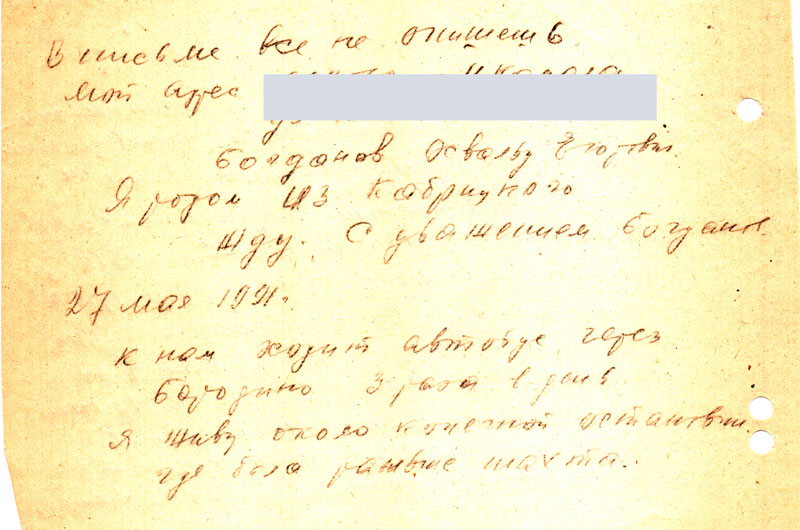 В письме все не опишешь.
Мой адрес
Богданов Освальд Егорович
Я родом из Кабрицкого
жду. С уважением Богданов.
27 мая 1991.
к нам ходит автобус через
Бородино 3 раза в день
я живу около конечной остановки
где была раньше шахта.